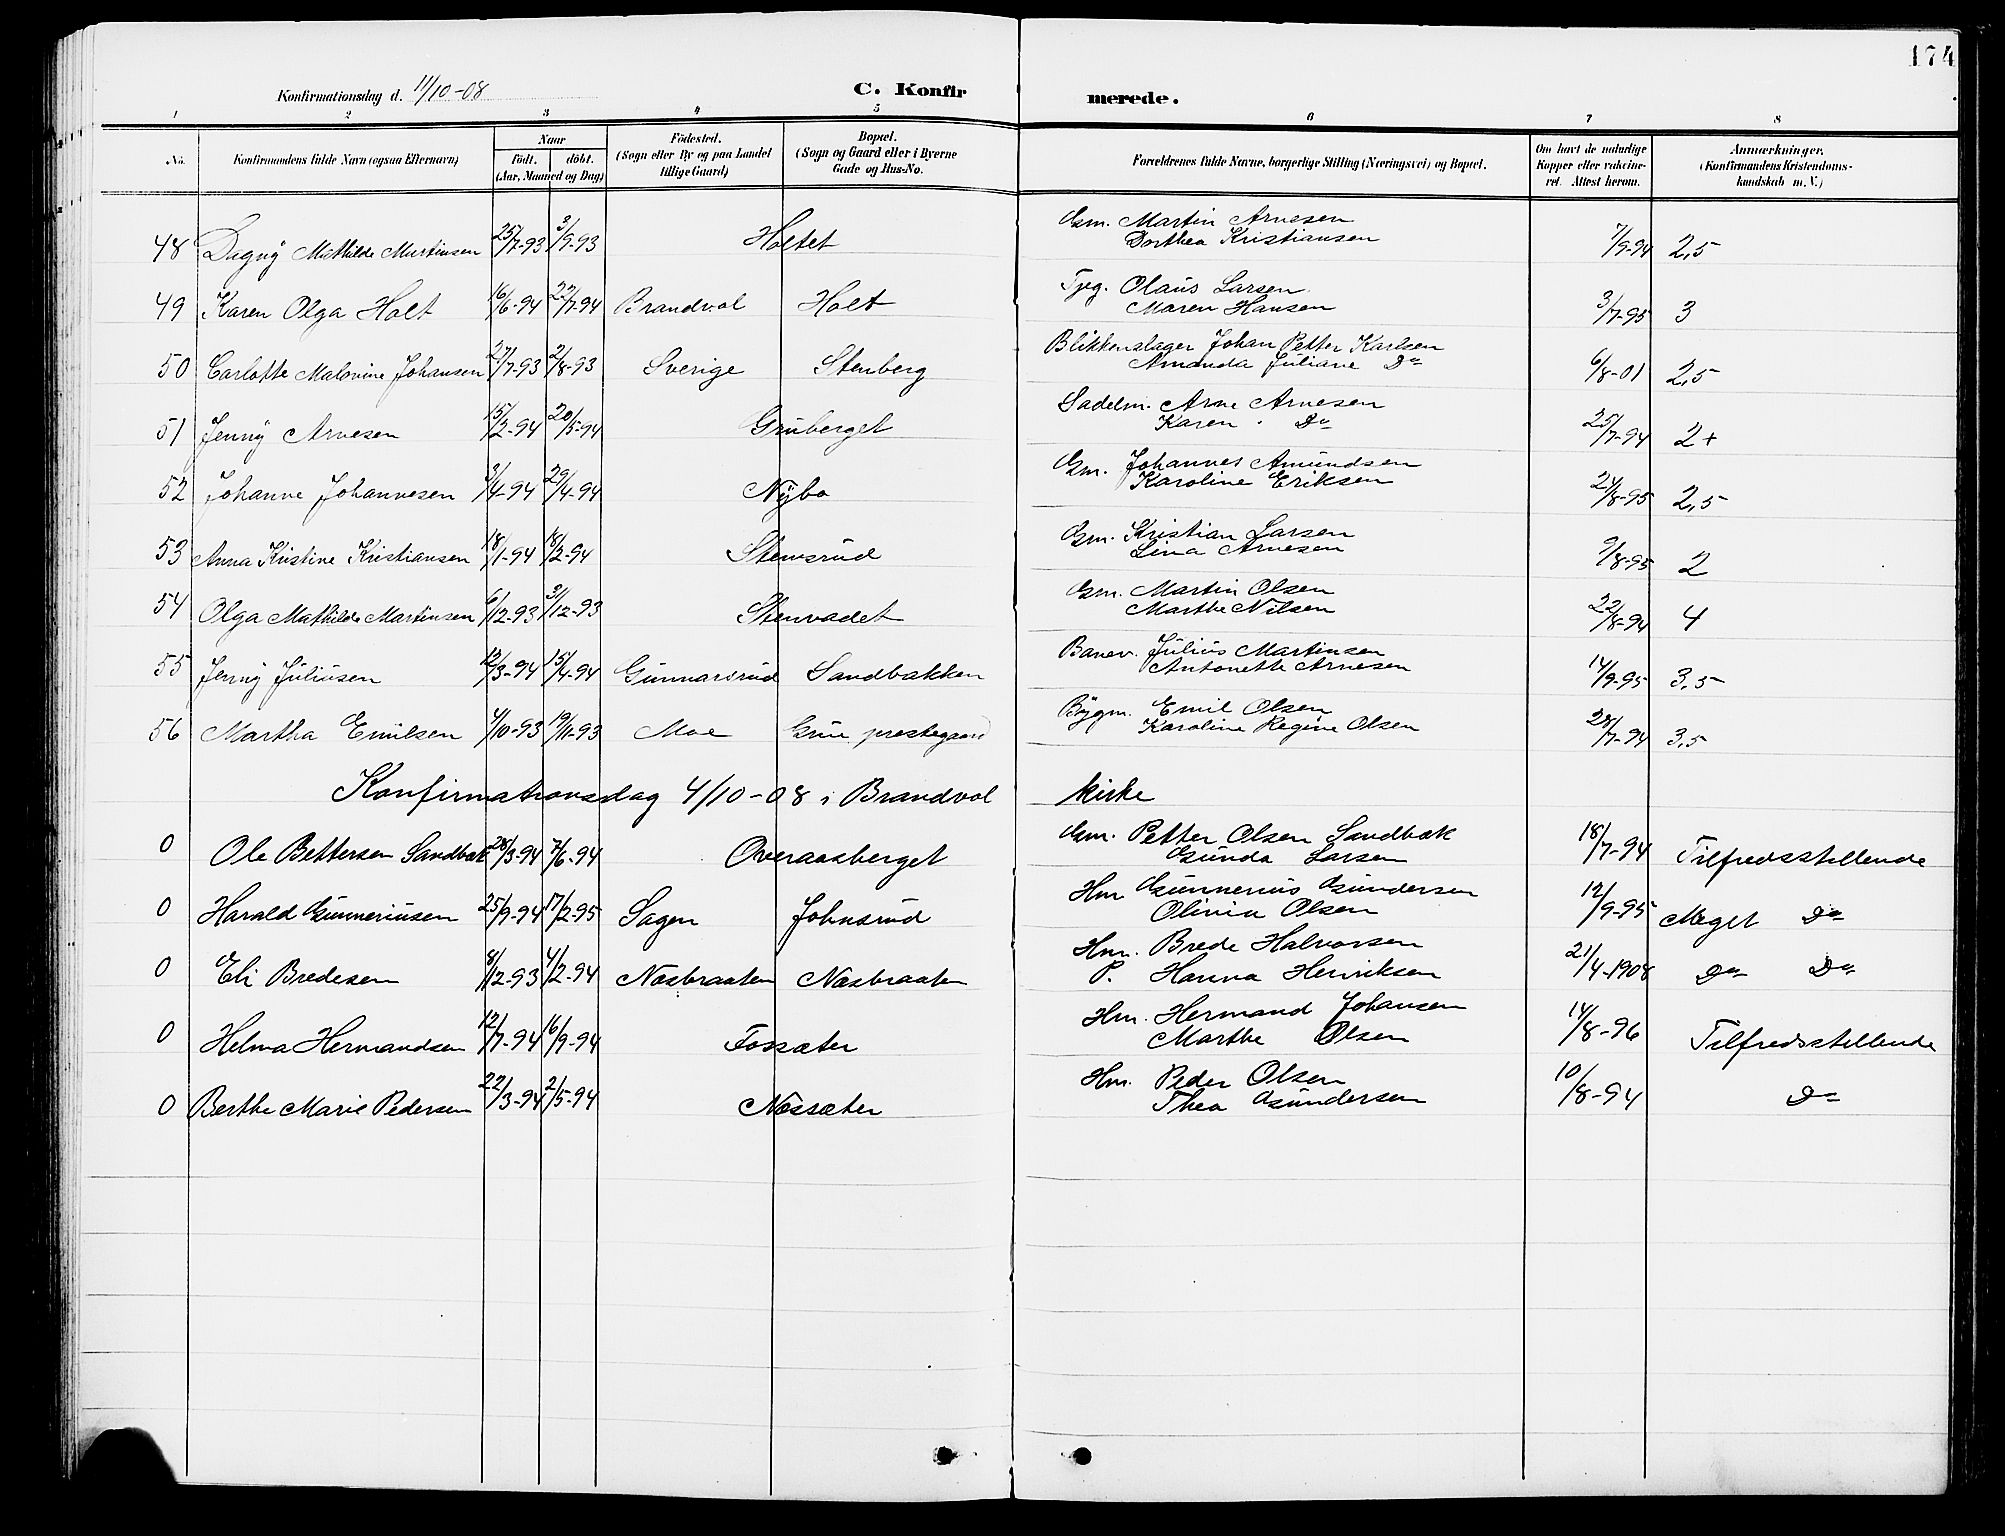 174
Konfirmationsdag d. 11/10-08
C. Konfirmerede.
1 2 3 4 5 6 7 8
No. Konfirmandens fulde Navn (ogsaa Efternavn) Naar Födt. döbt. (Aar, Maaned og Dag) Födested. (Sogn eller By og paa Landet tillige Gaard) Bopæl. (Sogn og Gaard eller i Byerne Gade og Hus-No. Forældrenes fulde Navne, borgerlige Stilling (Næringsvei) og Bopæl. Om havt de naturlige Kopper eller vaccineret. Attest herom. Anmærkninger. (Konfirmandens Kristendomskundskab m. V.)
48 Dagny Mathilde Martinsen 25/7-93 3/9-93 Holtet Gm. Martin Arnesen 7/9-94 2,5
Dorthea Kristiansen
49 Karen Olga Holt 16/6-94 22/7-94 Brandvol Holt Tjeg. Olaus Larsen 3/7-95 3
Maren Hansen
50 Carlotte Malovine Johansen 27/7-93 2/8-93 Sverige Stenberg Blikkenslager Johan Petter Karlsen 6/8-01 2,5
Amanda Juliane Do
51 Jenny Arnesen 15/2-94 20/5-94 Gruberget Sadelm. Arne Arnesen 25/7-94 2+
Karen Do
52 Johanne Johannesen 3/4-94 29/4-94 Nybo Gm. Johannes Amundsen 21/8-95 2,5
Karoline Eriksen
53 Anna Kristine Kristiansen 18/1-94 18/2-94 Stensrud Gm. Kristian Larsen 9/8-95 2
Lina Arnesen
54 Olga Mathilde Martinsen 6/12-93 31/12-93 Stenvadet Gm. Martin Olsen 22/8-94 4
Marthe Nilsen
55 Jenny Juliusen 12/3-94 15/4-94 Gunnarsrud Sandbakken Banev. Julius Martinsen 14/9-95 3,5
Antonette Arnesen
56 Martha Emilsen 4/10-93 19/11-93 Moe Grue prestegaard Bygm. Emil Olsen 28/7-94 3,5
Karoline Regine Olsen
Konfirmationsdag 4/10-08 i Brandvol kirke
0 Ole Bettersen Sandbæk 28/3-94 7/6-94 Overaasberget Gm. Petter Olsen Sandbæk 18/7-94 Tilfredsstillende
Gunda Larsen
0 Harald Gunneriusen 25/9-94 17/2-95 Sagen Johnsrud Hm Gunnerius Gundersen 12/9-95 Meget Do
Olivia Olsen
0 Eli Bredesen 8/12-93 4/2-94 Næsbraaten Næsbraaten Hm. Brede Halvorsen 21/4-1908 Do Do
P. Hanna Henriksen
0 Helma Hermandsen 12/7-94 16/9-94 Fossæter Hm. Hermand Johansen 14/8-96 Tilfredsstillende
Marthe Olsen
0 Berthe Marie Pedersen 22/3-94 2/5-94 Næssæter Hm. Peder Olsen 10/8-94 Do
Thea Gundersen